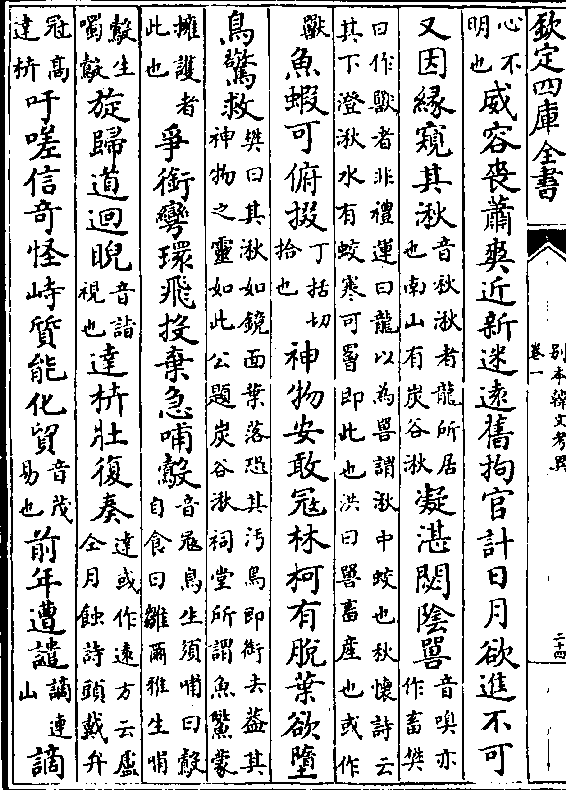 欽定四庫全書
别本韓文考異
卷一
二十四
心不明也威容喪蕭爽近新迷遠舊拘官計日月欲進不可
又因緣窺其湫音秋湫者龍所居也南山有炭谷湫凝湛閟陰嘼音嗅亦作畜樊
曰作獸者非禮運曰龍以為嘼謂湫中蛟也秋懷詩云其下澄湫水有蛟寒可罾即此也洪曰嘼畜産也或作
獸魚蝦可俯掇丁括切拾也神物安敢冦林柯有脱葉欲墮
鳥驚救樊曰其湫如鏡面葉落恐其汚鳥即銜去葢其神物之靈如此公題炭谷湫祠堂所謂魚鱉蒙
擁護者此也爭銜彎環飛投棄急哺鷇音冦鳥生須哺曰鷇自食曰雛爾雅生哺
鷇生噣鷇旋歸道迴睨音詣視也達枿壯復奏達或作遠方云盧仝月蝕詩頭戴弁
冠髙達枿吁嗟信竒怪峙質能化貿音茂易也前年遭譴謫連山謫